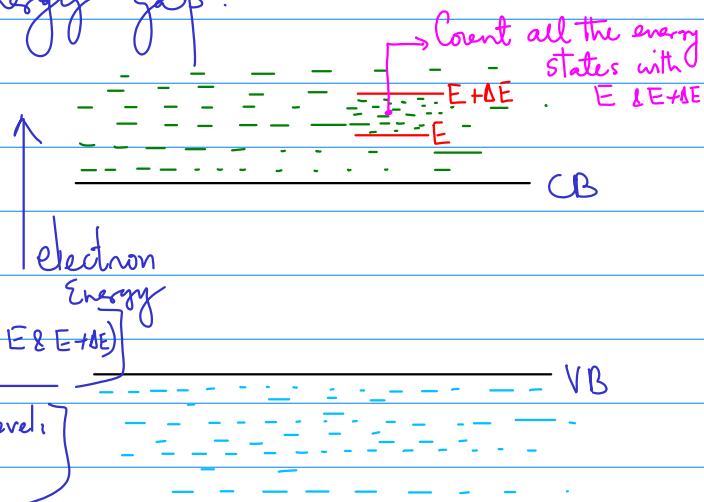 ergy gap.
Count all the energy
states with
E & E+ΔE
E+ΔE
E
CB
electron
Energy
E & E+ΔE)
VB
evel: